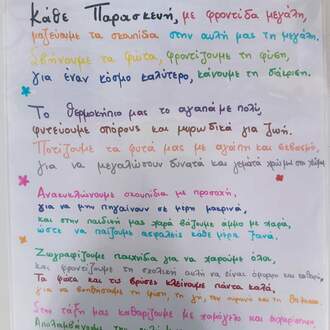 Κάθε Παρασκευή, με φροντίδα μεγάλη,
μαζεύουμε τα σκουπίδια στην αυλή μας τη μεγάλη.
Σβήνουμε τα φώτα, φροντίζουμε τη φύση,
για έναν κόσμο καλύτερο, κάνουμε τη διάκριση.
Το θερμοκήπιο μας το αγαπάμε πολύ,
φυτεύουμε σπόρους και μυρωδικά για ζωή.
Ποτίζουμε τα φυτά μας με αγάπη και σεβασμό,
για να μεγαλώσουν δυνατά και γεμάτα χρώμα στο χώρο
Ανακυκλώνουμε σκουπίδια με προσοχή,
για να μην πηγαίνουν σε μέρη μακρινά,
και στην παιδική μας χαρά βάζουμε άμμο με χαρά,
ώστε να παίζουμε ασφαλείς κάθε μέρα ξανά.
Ζωγραφίζουμε παιχνίδια για να χαρούμε όλοι,
και φροντίζουμε τη σχολική αυλή να είναι όμορφη και καθαρή.
Τα φώτα και τις βρύσες κλείνουμε πάντα καλά,
για να βοηθήσουμε τη φύση, τη γη, τον ουρανό και τη θάλασσα
Στην τάξη μας καθαρίζουμε με χαμόγελο και
Απολαμβάνουμε